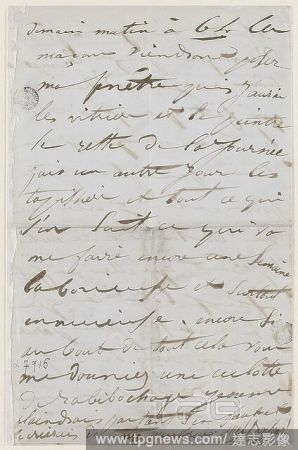 demain matin à 6h les
maçons viendront poser
ma fenêtre puis j'aurai
les vitrier et le peintre
le reste de la journée
puis un autre jour les
tapissier et tout ce qui
s'en suit ce qui va
me faire encore une semaine
laborieuse et surtout
ennuieuse. encore si
au bout de tout cela vous
me donniez une culotte
de rabibochage je ne me
plaindrais pas tant
7916
www.tpgnews.com/達志影像